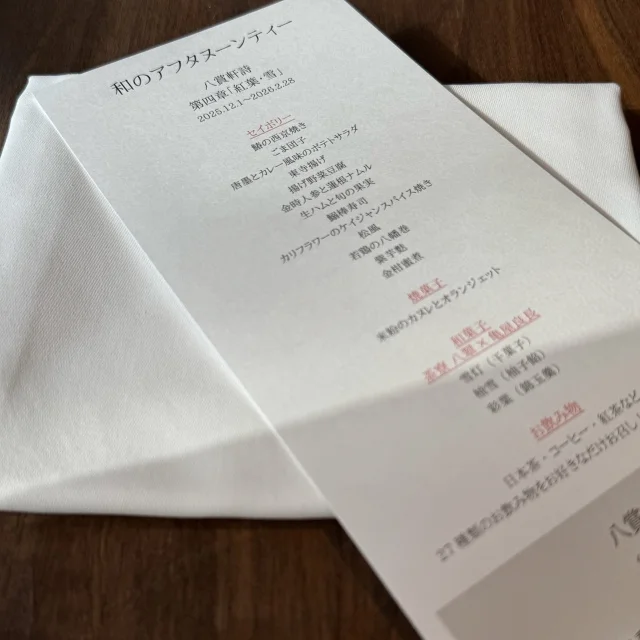 和のアフタヌーンティー
八賞軒詩
第四章「紅葉・雪」
2025.12.1～2026.2.28
セイボリー
鰆の西京焼き
ごま団子
唐墨とカレー風味のポテトサラダ
巣寺揚げ
揚げ野菜豆腐
金時人参と蓮根ナムル
生ハムと旬の果実
鯛棒寿司
カリフラワーのケイジャンスパイス焼き
松風
若鶏の八幡巻
栗干麩
金柑蜜煮
焼菓子
米粉のカヌレとオランジェット
和菓子
雪灯(干菓子)
融雪
彩葉
お飲み物
日本茶・コーヒー・紅茶など
27種類のお飲み物をお好きなだけお召し
八賞